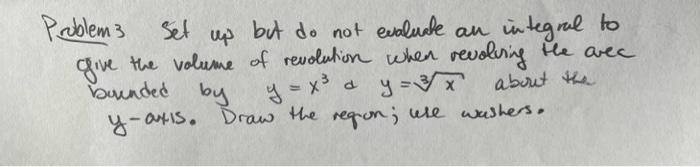 Problem 3 Set up but do not evaluate an integral to
give the volume of revolution when revolving the area
bounded by y = x³ & y = ∛x about the
y-axis. Draw the region; use washers.